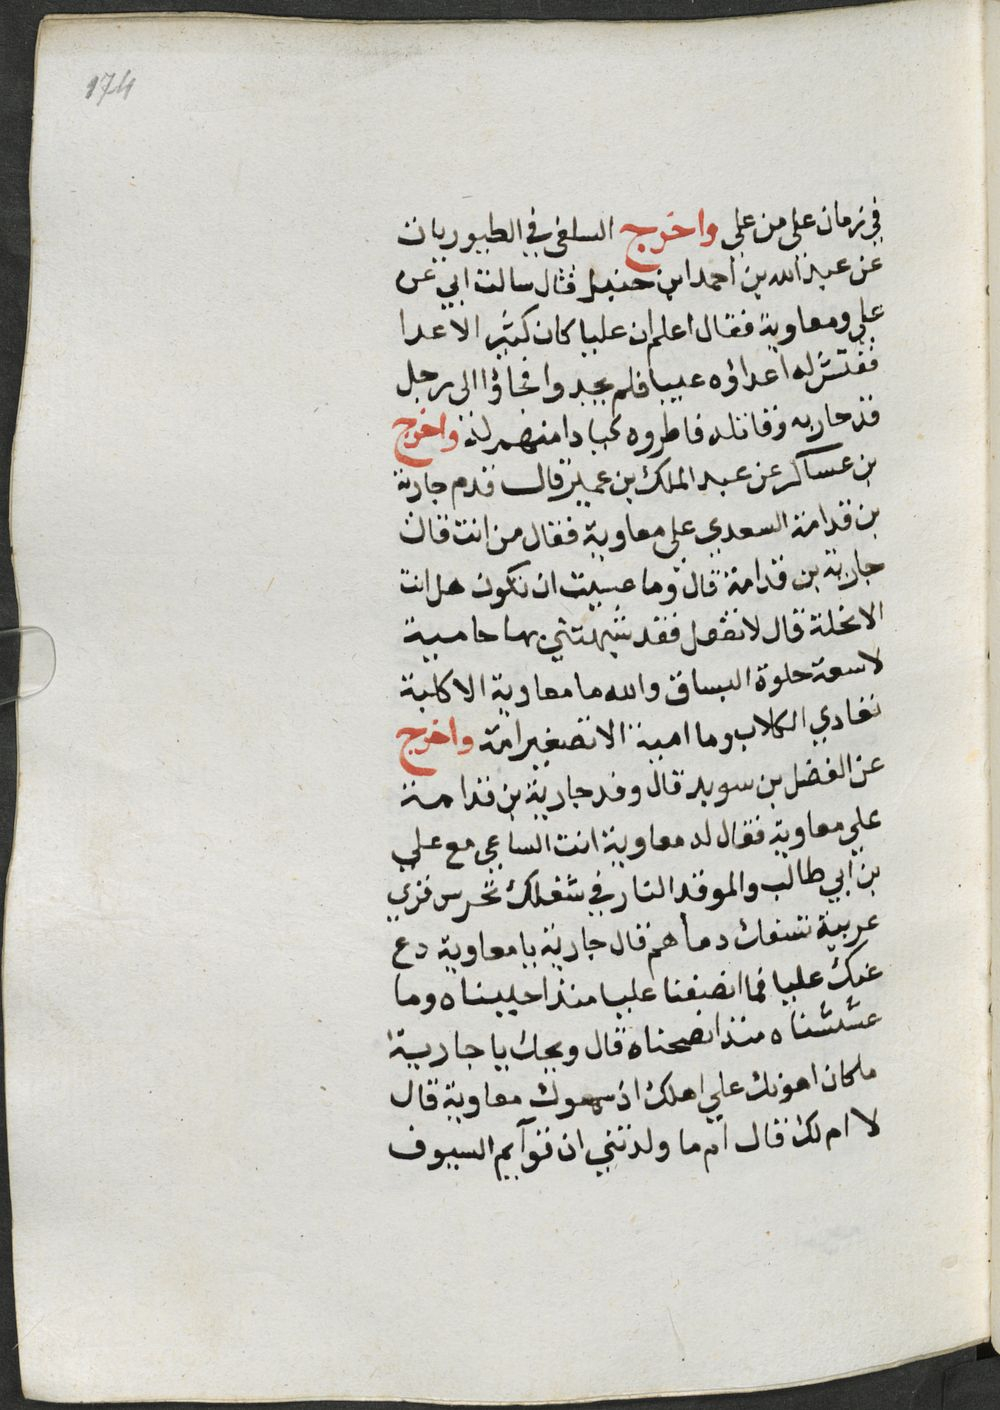 174
في زمان علي من علي واخرج السلفي في الطيوريات
عن عبد الله بن احمد ابن حنبل قال سالت ابي عن
علي ومعاوية فقال اعلم ان عليا كان كثير الاعدا
ففتش له اعداؤه عيبا فلم يجدوا فجاؤا الى رجل
قد حاربه وقاتله فاطروه كيادا منهم له واخرج
بن عساكر عن عبد الملك بن عمير قال قدم جارية
بن قدامة السعدي على معاوية فقال من انت قال
جارية بن قدامة قال وما عسيت ان تكون هل انت
الا نحلة قال لا تفعل فقد شبهتني بها حامية
لاسعة حلوة البساق والله ما معاوية الا كلبة
تعادي الكلاب وما امية الا تصغير امة واخرج
عن الفضل بن سويد قال وفد جارية بن قدامة
على معاوية فقال له معاوية انت الساعي مع علي
بن ابي طالب والموقد النار في شعلك تحرس قري
عربية تسفك دماهم قال جارية يا معاوية دع
عنك عليا فما ابغضنا عليا منذ احببناه وما
غششناه منذ انصحناه قال ويحك يا جارية
ما كان اهونك على اهلك اذ سموك معاوية قال
لا ام لك قال ام ما ولدتني ان قوآيم السيوف